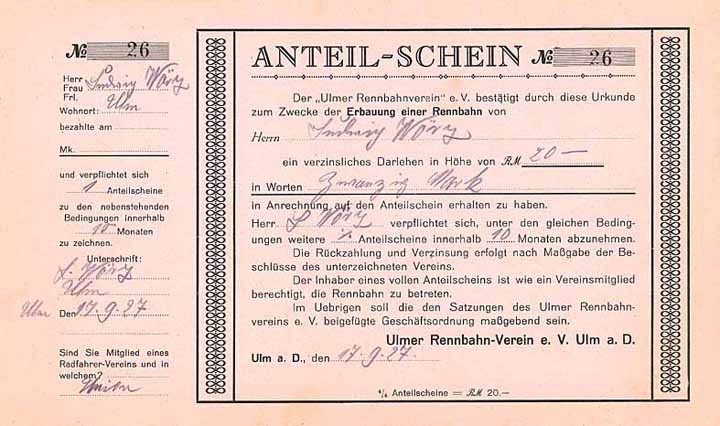 № 26
Herr
Frau Ludwig Wörz
Frl.
Wohnort: Ulm
bezahlte am
Mk.
und verpflichtet sich
1 Anteilscheine
zu den nebenstehenden
Bedingungen innerhalb
10 Monaten
zu zeichnen.
Unterschrift:
L. Wörz
Ulm
Ulm Den 17.9.27
Sind Sie Mitglied eines
Radfahrer-Vereins und in
welchem?
ANTEIL-SCHEIN № 26
Der „Ulmer Rennbahnverein" e. V. bestätigt durch diese Urkunde
zum Zwecke der Erbauung einer Rennbahn von
Herrn Ludwig Wörz
ein verzinsliches Darlehen in Höhe von RM 20—
in Worten Zwanzig Mark
in Anrechnung auf den Anteilschein erhalten zu haben.
Herr L Wörz verpflichtet sich, unter den gleichen Beding-
ungen weitere Anteilscheine innerhalb 10 Monaten abzunehmen.
Die Rückzahlung und Verzinsung erfolgt nach Maßgabe der Be-
schlüsse des unterzeichneten Vereins.
Der Inhaber eines vollen Anteilscheins ist wie ein Vereinsmitglied
berechtigt, die Rennbahn zu betreten.
Im Uebrigen soll die den Satzungen des Ulmer Rennbahn-
vereins e. V. beigefügte Geschäftsordnung maßgebend sein.
Ulmer Rennbahn-Verein e. V. Ulm a. D.
Ulm a. D., den 17.9.27.
Anteilscheine = RM 20.—